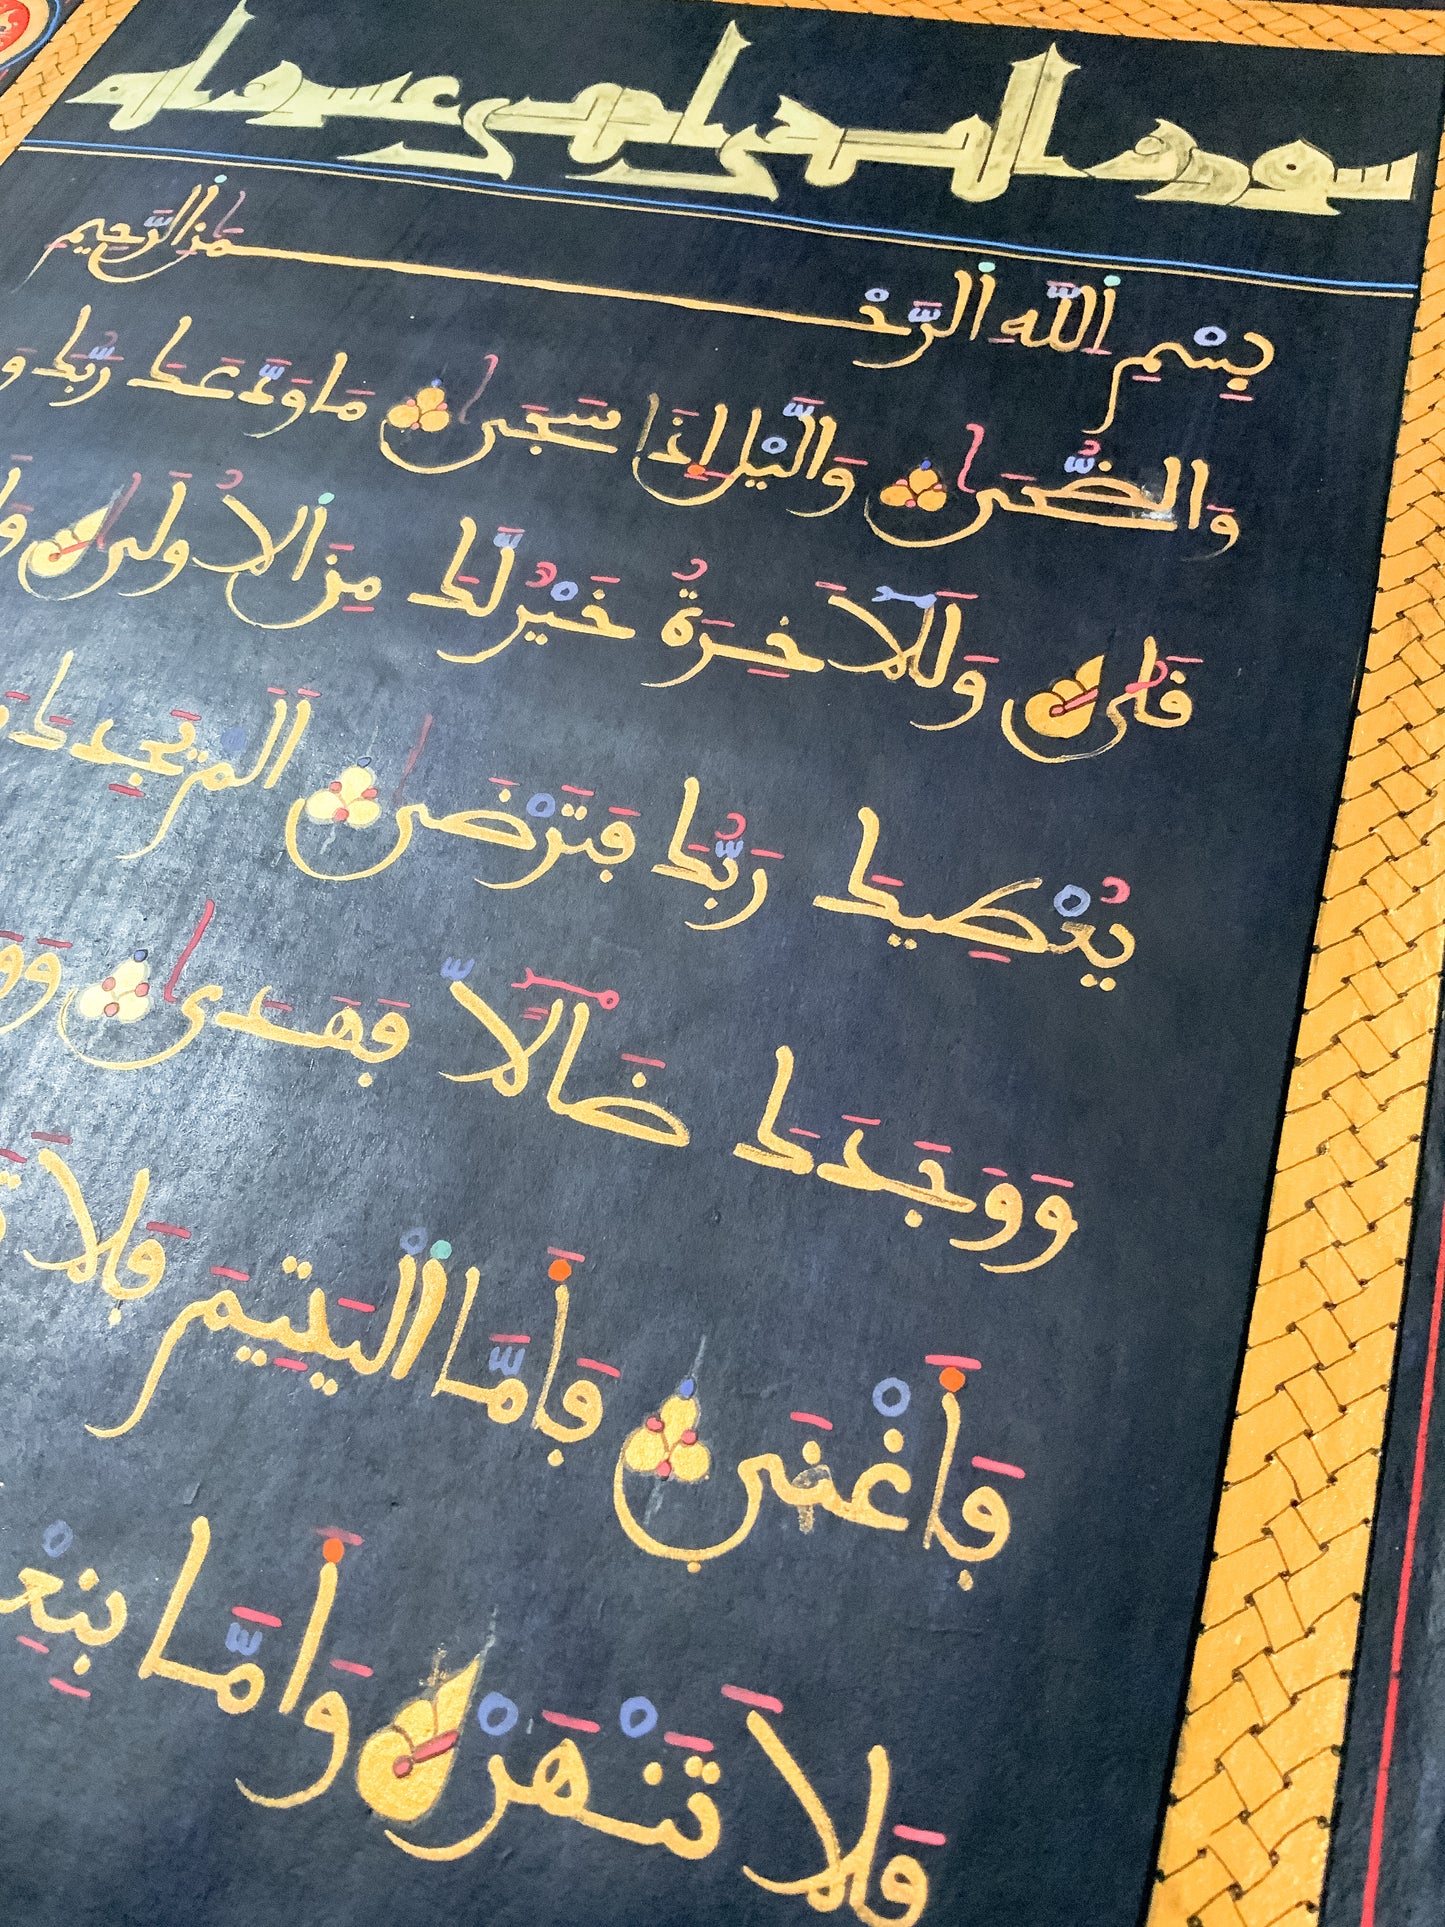 بِسْمِ اللَّهِ الرَّحْمَٰنِ الرَّحِيمِ
وَالضُّحَىٰ وَالَّيْلِ إِذَا سَجَىٰ مَا وَدَّعَكَ رَبُّكَ وَ
قَلَىٰ وَلَلَآخِرَةُ خَيْرٌ لَّكَ مِنَ الُاولَىٰ وَ
يُعْطِيكَ رَبُّكَ فَتَرْضَىٰ أَلَمْ يَجِدْكَ
وَوَجَدَكَ ضَآلًّا فَهَدَىٰ وَوَ
فَأَغْنَىٰ فَأَمَّا الْيَتِيمَ فَلَا
فَلَا تَنْهَرْ وَأَمَّا بِنِعْ